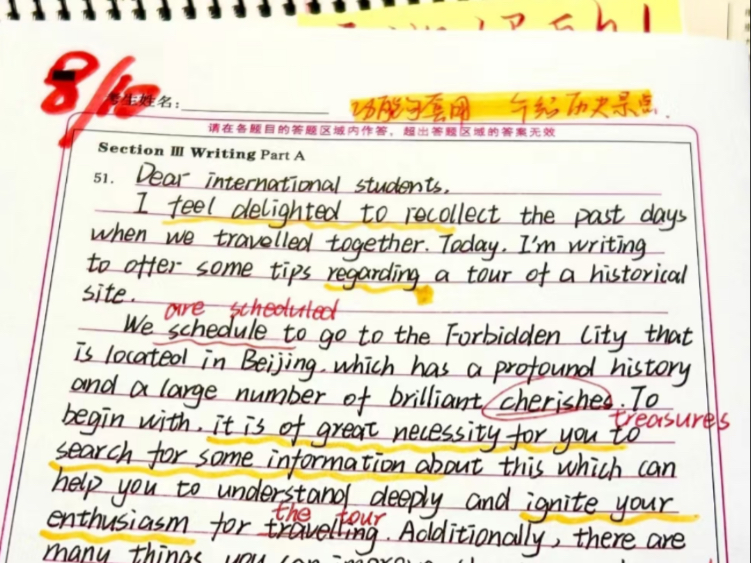 8/10
考生姓名：
功能句套用 介绍历史景点.
请在各题目的答题区域内作答，超出答题区域的答案无效
Section III Writing Part A
51. Dear international students,
I feel delighted to recollect the past days
when we travelled together. Today, I'm writing
to offer some tips regarding a tour of a historical
site.
are scheduled
We schedule to go to the Forbidden City that
is located in Beijing, which has a profound history
and a large number of brilliant cherishes. To
treasures
begin with, it is of great necessity for you to
search for some information about this which can
help you to understand deeply and ignite your
enthusiasm for travelling. Additionally, there are
the tour
many things you can improve